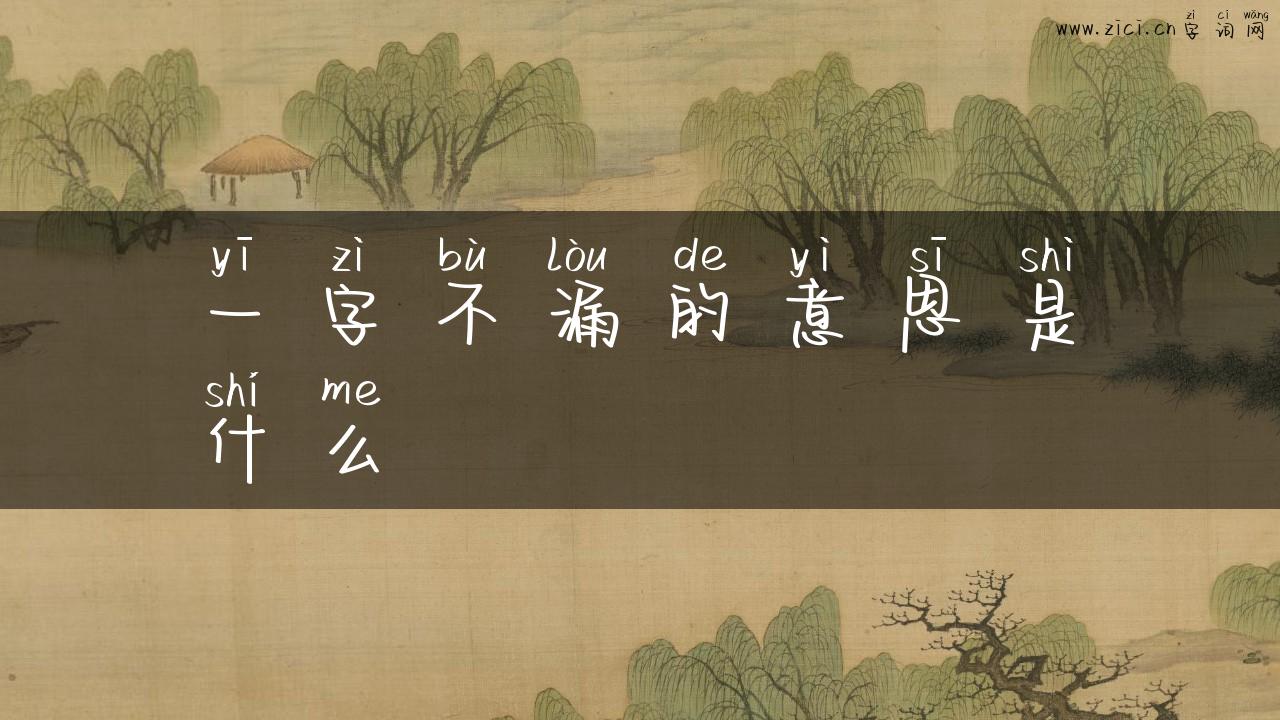 zì cí wǎng
www.zici.cn 字词网
yī zì bù lòu de yì sī shì
一字不漏的意思是
shí me
什么